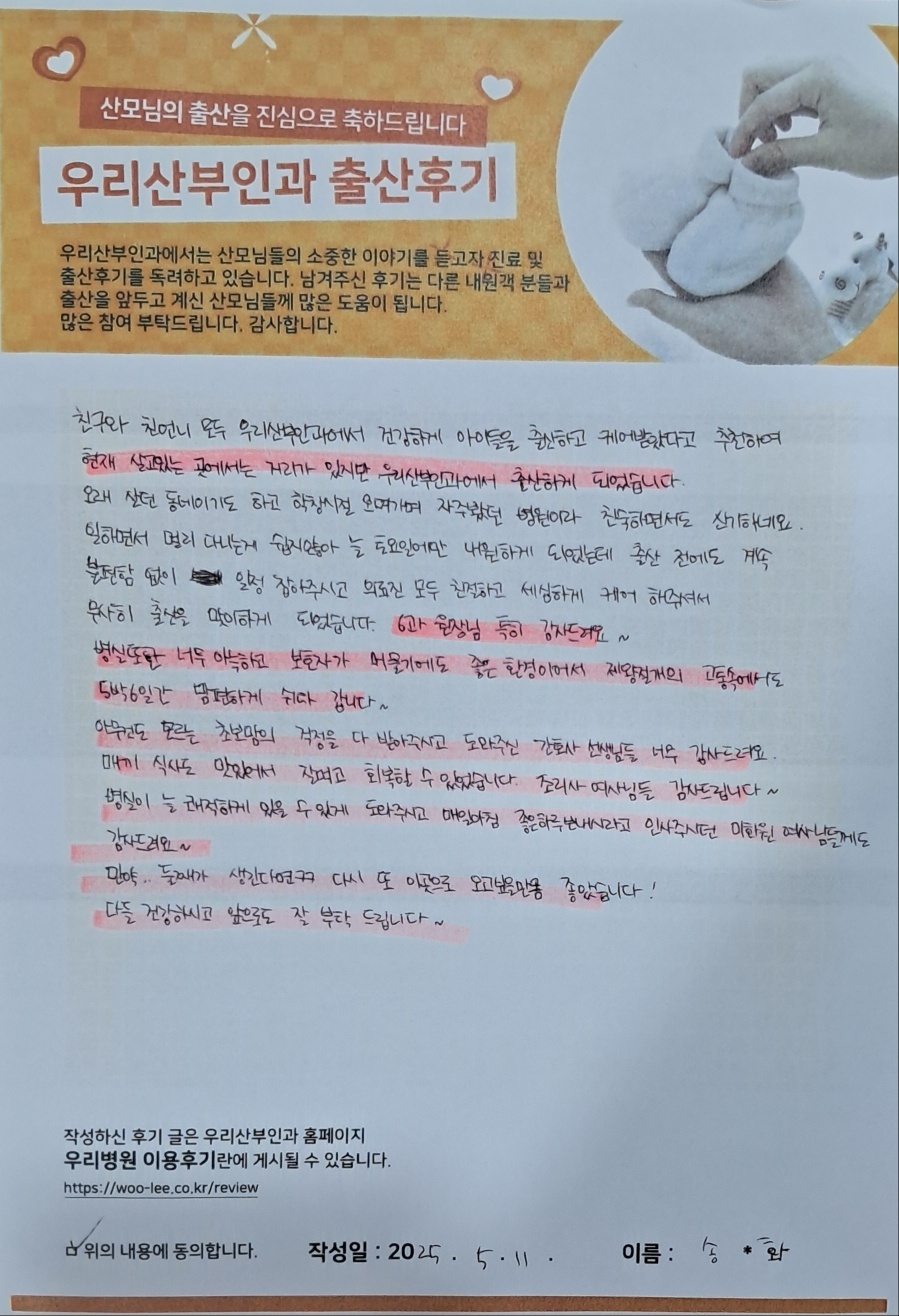 산모님의 출산을 진심으로 축하드립니다
우리산부인과 출산후기
우리산부인과에서는 산모님들의 소중한 이야기를 듣고자 진료 및
출산후기를 독려하고 있습니다. 남겨주신 후기는 다른 내원객 분들과
출산을 앞두고 계신 산모님들께 많은 도움이 됩니다.
많은 참여 부탁드립니다. 감사합니다.
친구와 친언니 모두 우리산부인과에서 건강하게 아이들을 출산하고 케어받았다고 추천하여
현재 살고있는 곳에서는 거리가 있지만 우리산부인과에서 출산하게 되었습니다.
오래 살던 동네이기도 하고 학창시절 오며가며 자주봤던 병원이라 친숙하면서도 신기하네요.
일하면서 멀리 다니는게 쉽지않아 늘 토요일에만 내원하게 되었는데 출산 전에도 계속
불편함 없이 일정 잡아주시고 의료진 모두 친절하고 세심하게 케어 해주셔서
무사히 출산을 맞이하게 되었습니다. 6과 원장님 특히 감사드려요~
병실또한 너무 아늑하고 보호자가 머물기에도 좋은 환경이어서 제왕절개의 고통속에서도
5박6일간 맘편하게 쉬다 갑니다~
아무것도 모르는 초보맘의 걱정을 다 받아주시고 도와주신 간호사 선생님들 너무 감사드려요.
매끼 식사도 맛있어서 잘먹고 회복할 수 있었습니다. 조리사 여사님들 감사드립니다~
병실이 늘 쾌적하게 있을 수 있게 도와주시고 매일아침 좋은하루보내시라고 인사주시던 미화원 여사님들께도
감사드려요~
만약.. 둘째가 생긴다면ㅋㅋ 다시 또 이곳으로 오고싶을만큼 좋았습니다!
다들 건강하시고 앞으로도 잘 부탁 드립니다~
작성하신 후기 글은 우리산부인과 홈페이지
우리병원 이용후기란에 게시될 수 있습니다.
https://woo-lee.co.kr/review
위의 내용에 동의합니다. 작성일 : 2025. 5. 11. 이름 : 송 * 화